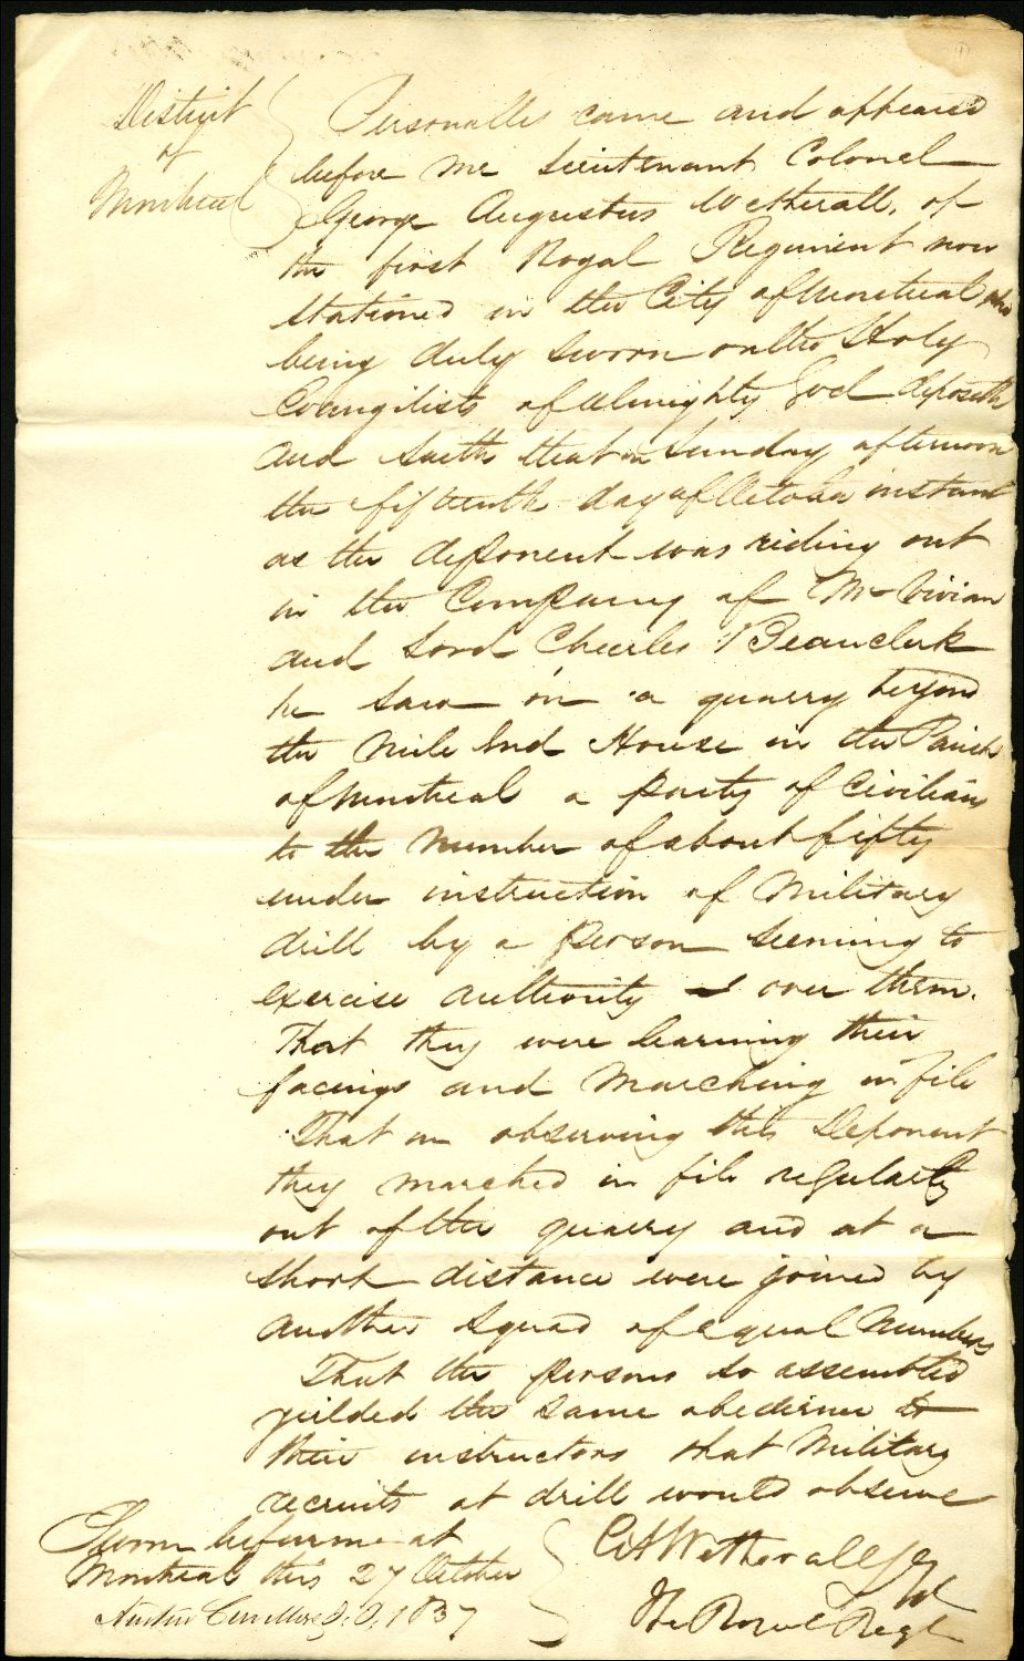 District
of
Montreal
Personally came and appeared
before me Lieutenant Colonel
George Augustus Wetherall, of
the first Royal Regiment now
stationed in the City of Montreal who
being duly sworn on the Holy
Evangilists of Almighty God deposeth
and saith that on Sunday afternoon
the fifteenth day of October instant
as the deponent was riding out
in the Company of Mr Vivian
and Lord Charles Beauclerk
he saw in a quarry beyond
the Mile End House in the Parish
of Montreal a party of Civilians
to the number of about fifty
under instruction of Military
drill by a person seeming to
exercise authority over them.
That they were learning their
facings and marching in file
That on observing this Deponent
they marched in file regularly
out of the quarry and at a
short distance were joined by
another squad of equal numbers
That the persons so assembled
yeilded the same obedience to
their instructors that Military
recruits at drill would observe
Sworn before me at
Montreal this 27 October
Austin Cuvillier J.P. 1837
GA Wetherall
The Royal Regt